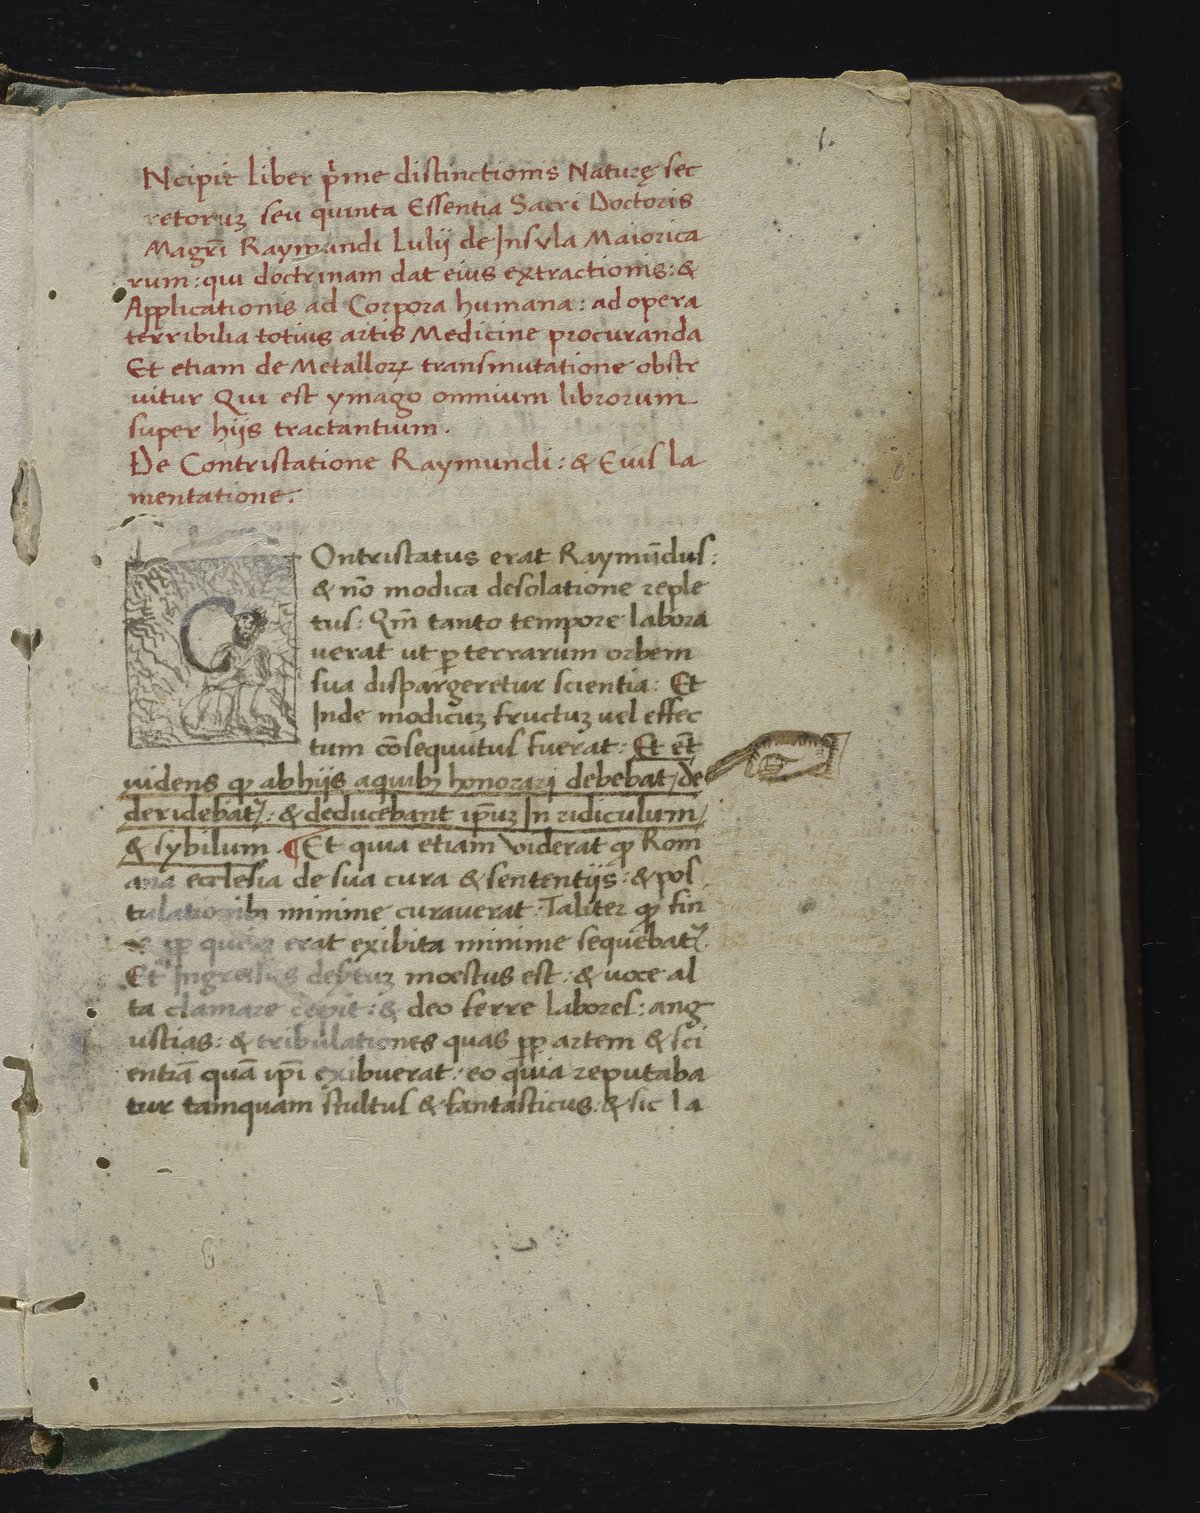 1.
Ncipit liber p̄me distinctionis Naturę sec
retoruꝫ seu quinta Essentia Sacri Doctoris
Magr̄i Raymundi Lulij de Insvla Maiorica
rum: qui doctrinam dat eius extractionis: &
Applicationis ad Corpora humana: ad opera
terribilia totius artis Medicine procuranda
Et etiam de Metalloꝝ transmutatione obstr
uitur Qui est ymago omnium librorum
super hijs tractantium.
De Contristatione Raymundi: & Eius la
mentatione.
C
Ontristatus erat Raymūdus:
& nō modica desolatione reple
tus: Qm̄ tanto tempore labora
uerat ut ꝑ terrarum orbem
sua dispargeretur scientia: Et
Inde modicuꝫ fructuꝫ uel effec
tum cōsequutus fuerat: Et et̄
uidens ꝙ ab hijs a quibꝫ honorari debebat / de
deridebat᷑: & deducebant ip̄uꝫ In ridiculum /
& sybilum. ¶ Et quia etiam viderat ꝙ Rom
ana ecclesia de sua cura & sententijs: & pos
tulationibꝫ minime curauerat. Taliter ꝙ fin
erat exibita minime sequebat᷑.
Et Ingressus moestus est: & uoce al
ta clamare cepit: & deo ferre labores: ang
ustias: & tribulationes quas ꝓꝑ artem & sci
entiā quā ip̄i exibuerat: eo quia reputaba
tur tamquam stultus & fantasticus: & sic la